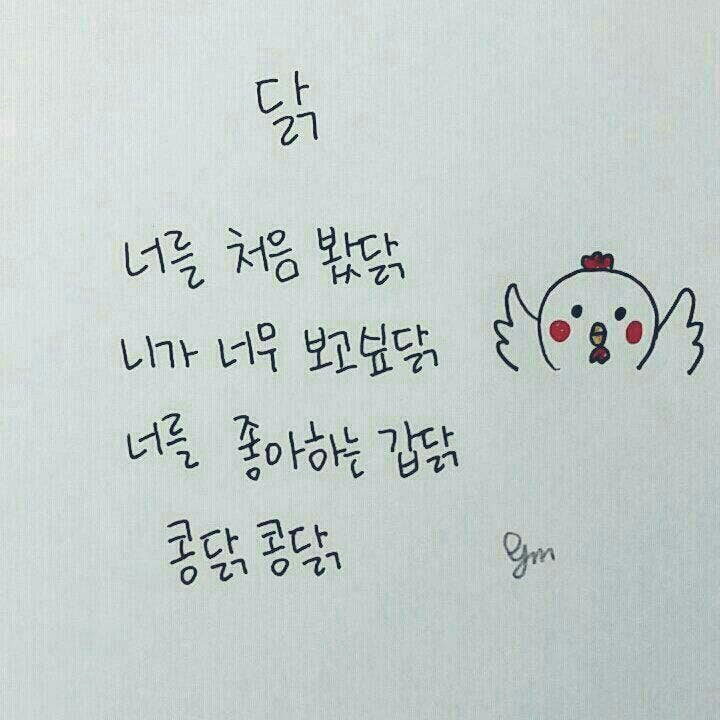 닭
너를 처음 봤닭
니가 너무 보고싶닭
너를 좋아하는 갑닭
콩닭 콩닭
gm